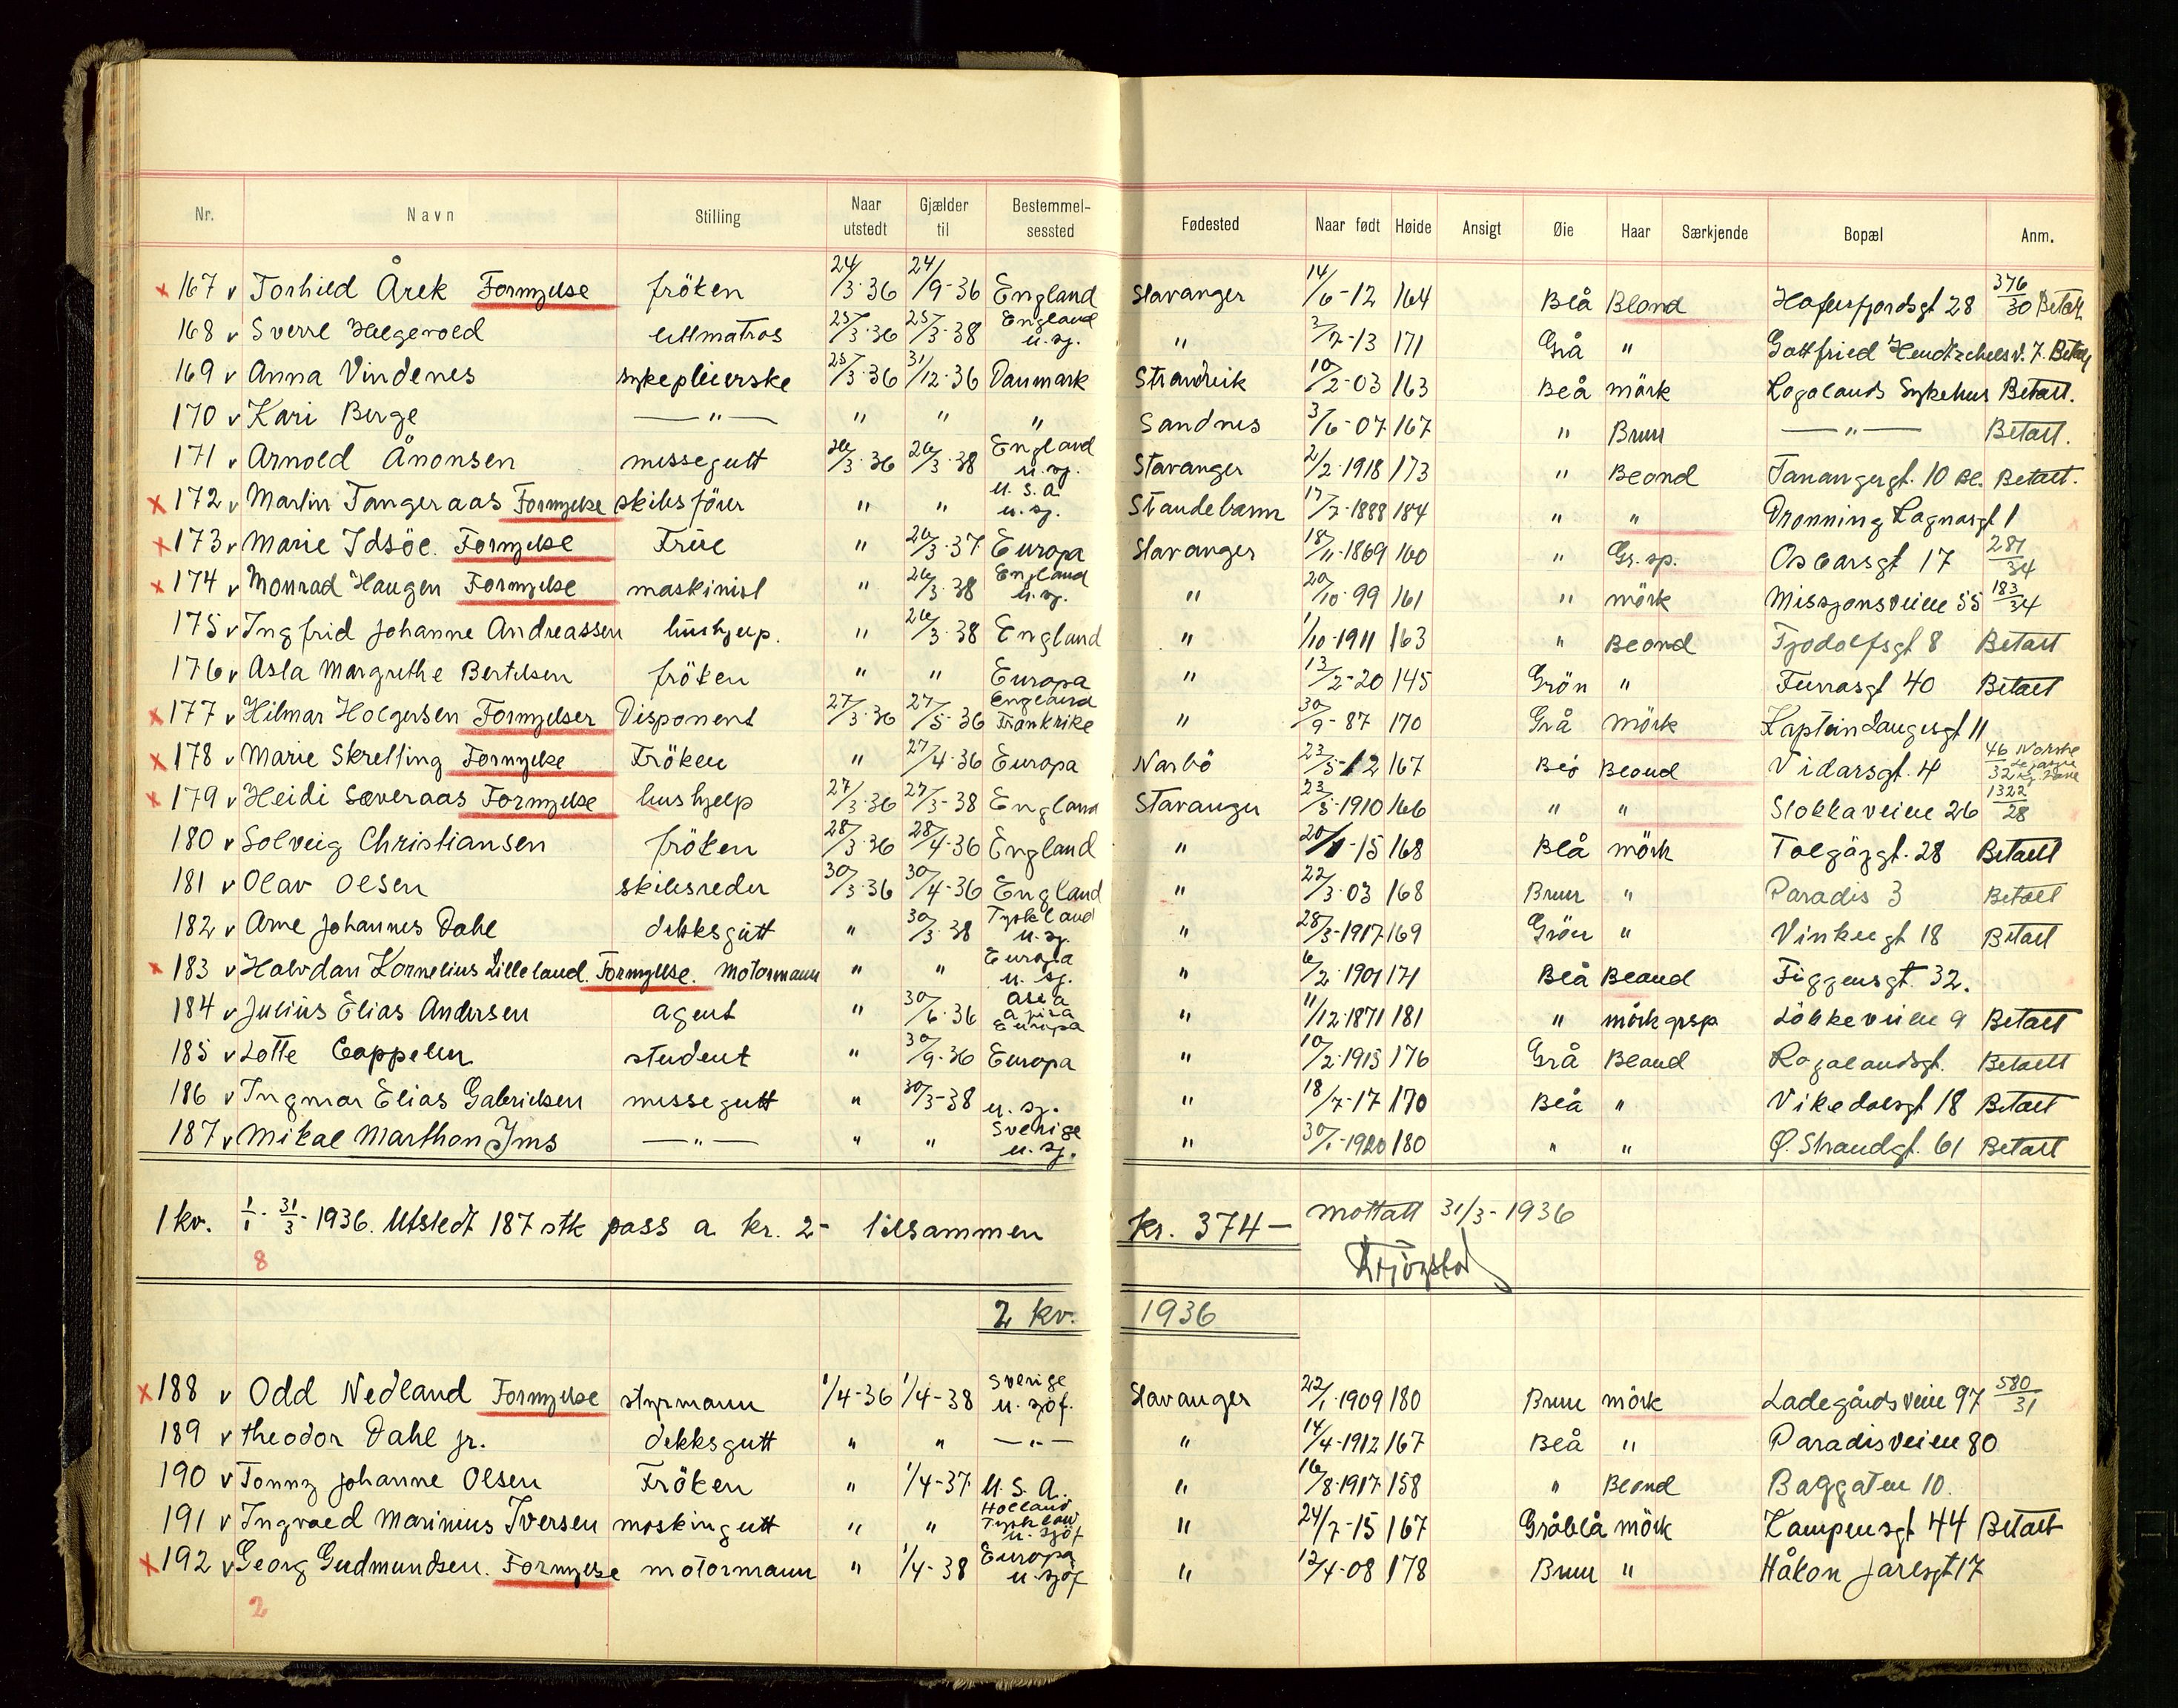 Nr. Navn Stilling Naar utstedt Gjælder til Bestemmelsessted Fødested Naar født Høide Ansigt Øie Haar Særkjende Bopæl Anm.
x 167 v Torhild Årek Fornyelse fröken 24/3-36 24/9-36 England Stavanger 14/6-12 164 Blå Blond Hafrsfjordsgt 28 376/30 Betalt
168 v Sverre Helgevold lettmatros 25/3-36 25/3-38 England u.sj. " 3/7-13 171 Grå " Gottfried v. 7. Betalt
169 v Anna Vindenes sykepleierske 25/3-36 31/12-36 Danmark Strandvik 10/2-03 163 Blå mörk Rogalands Sykehus Betalt.
170 v Kari Berge —"— " " " Sandnes 3/6-07 167 " Brun —"— Betalt.
171 v Arnold Ånonsen messegutt 26/3-36 26/3-38 England u.sj. Stavanger 2/2-1918 173 " Blond Tanangergt. 10 Bl. Betalt.
x 172 v Martin Tangeraas Fornyelse skibsförer " " U.S.A. u.sj. Strandebarm 17/7-1888 184 " " Dronning Ragnasgt 1
x 173 v Marie Idsöe. Fornyelse Frue " 26/3-37 Europa Stavanger 18/11-1869 160 " Gr.sp. Oscarsgt 17 281/34
x 174 v Monrad Haugen Fornyelse maskinist " 26/3-38 England u.sj. " 20/10-99 161 " mörk Misjonsveien 55 183/34
175 v Ingfrid Johanne Andreassen hushjelp. " 26/3-38 England " 1/10-1911 163 " Blond Tjodolfsgt 8 Betalt
176 v Asla Margrethe Bertelsen fröken " " Europa " 13/2-20 145 Grön " Furrasgt 40 Betalt
x 177 v Hilmar Holgersen Fornyelser Disponent 27/3-36 27/5-36 England Frankrike " 30/9-87 170 Grå mörk Kaptein Langesgt 11
x 178 v Marie Skretting Fornyelse Fröken " 27/4-36 Europa Narbö 23/5-12 167 Blå Blond Vidarsgt. 4 46/32 Norske
x 179 v Heidi Sæveraas Fornyelse hushjelp 27/3-36 27/3-38 England Stavanger 23/5-1910 166 " " Stokkaveien 26 1322/28
180 v Solveig Christiansen fröken 28/3-36 28/4-36 England " 20/1-15 168 Blå mörk Tolgözgt. 28 Betalt
181 v Olav Olsen skibsreder 30/3-36 30/4-36 England " 22/3-03 168 Brun " Paradis 3 Betalt
182 v Arne Johannes Dahl dekksgutt " 30/3-38 Tyskland u.sj. " 28/3-1917 169 Grön " Vinkelgt 18 Betalt
x 183 v Halvdan Kornelius Lilleland. Fornyelse. motormann " " Europa u.sj. " 6/2-1901 171 Blå Blond Figgensgt. 32.
184 v Julius Elias Andersen agent " 30/6-36 Asia Europa " 11/12-1871 181 " mörk grsp Lökkeveien 9 Betalt
185 v Lotte Cappelen student " 30/9-36 Europa " 10/2-1915 176 Grå Blond Rogalandsgt. Betalt
186 v Ingmar Elias Gabrielsen messegutt " 30/3-38 u.sj. " 18/7-17 170 Blå " Vikedalsgt 18 Betalt
187 v Mikal Marthon Ims —"— " " Sverige u.sj. " 30/1-1920 180 " " Ø. Strandgt. 61 Betalt
1 kv. 1/1-31/3-1936. Utstedt 187 stk pass a kr. 2- tilsammen kr. 374— mottatt 31/3-1936
8
2 kv. 1936
x 188 v Odd Nedland Fornyelse styrmann 1/4-36 1/4-38 Sverige u.sjöf. Stavanger 22/1-1909 180 Brun mörk Ladegårdsveien 97 580/31
189 v Theodor Dahl jr. dekksgutt " " —"— " 14/4-1912 167 Blå " Paradisveien 80
190 v Tonny Johanne Olsen Fröken " 1/4-37 U.S.A. " 16/8-1917 158 " Blond Baggaten 10.
191 v Ingvald Marinius Iversen maskingutt " " Holland Tyskland u.sjöf " 24/7-15 167 Gråblå mörk Kampensgt 44 Betalt
x 192 v Georg Gudmundsen. Fornyelse motormann " 1/4-38 Europa u.sjöf " 12/4-08 178 Brun " Håkon Jarlsgt 17
2